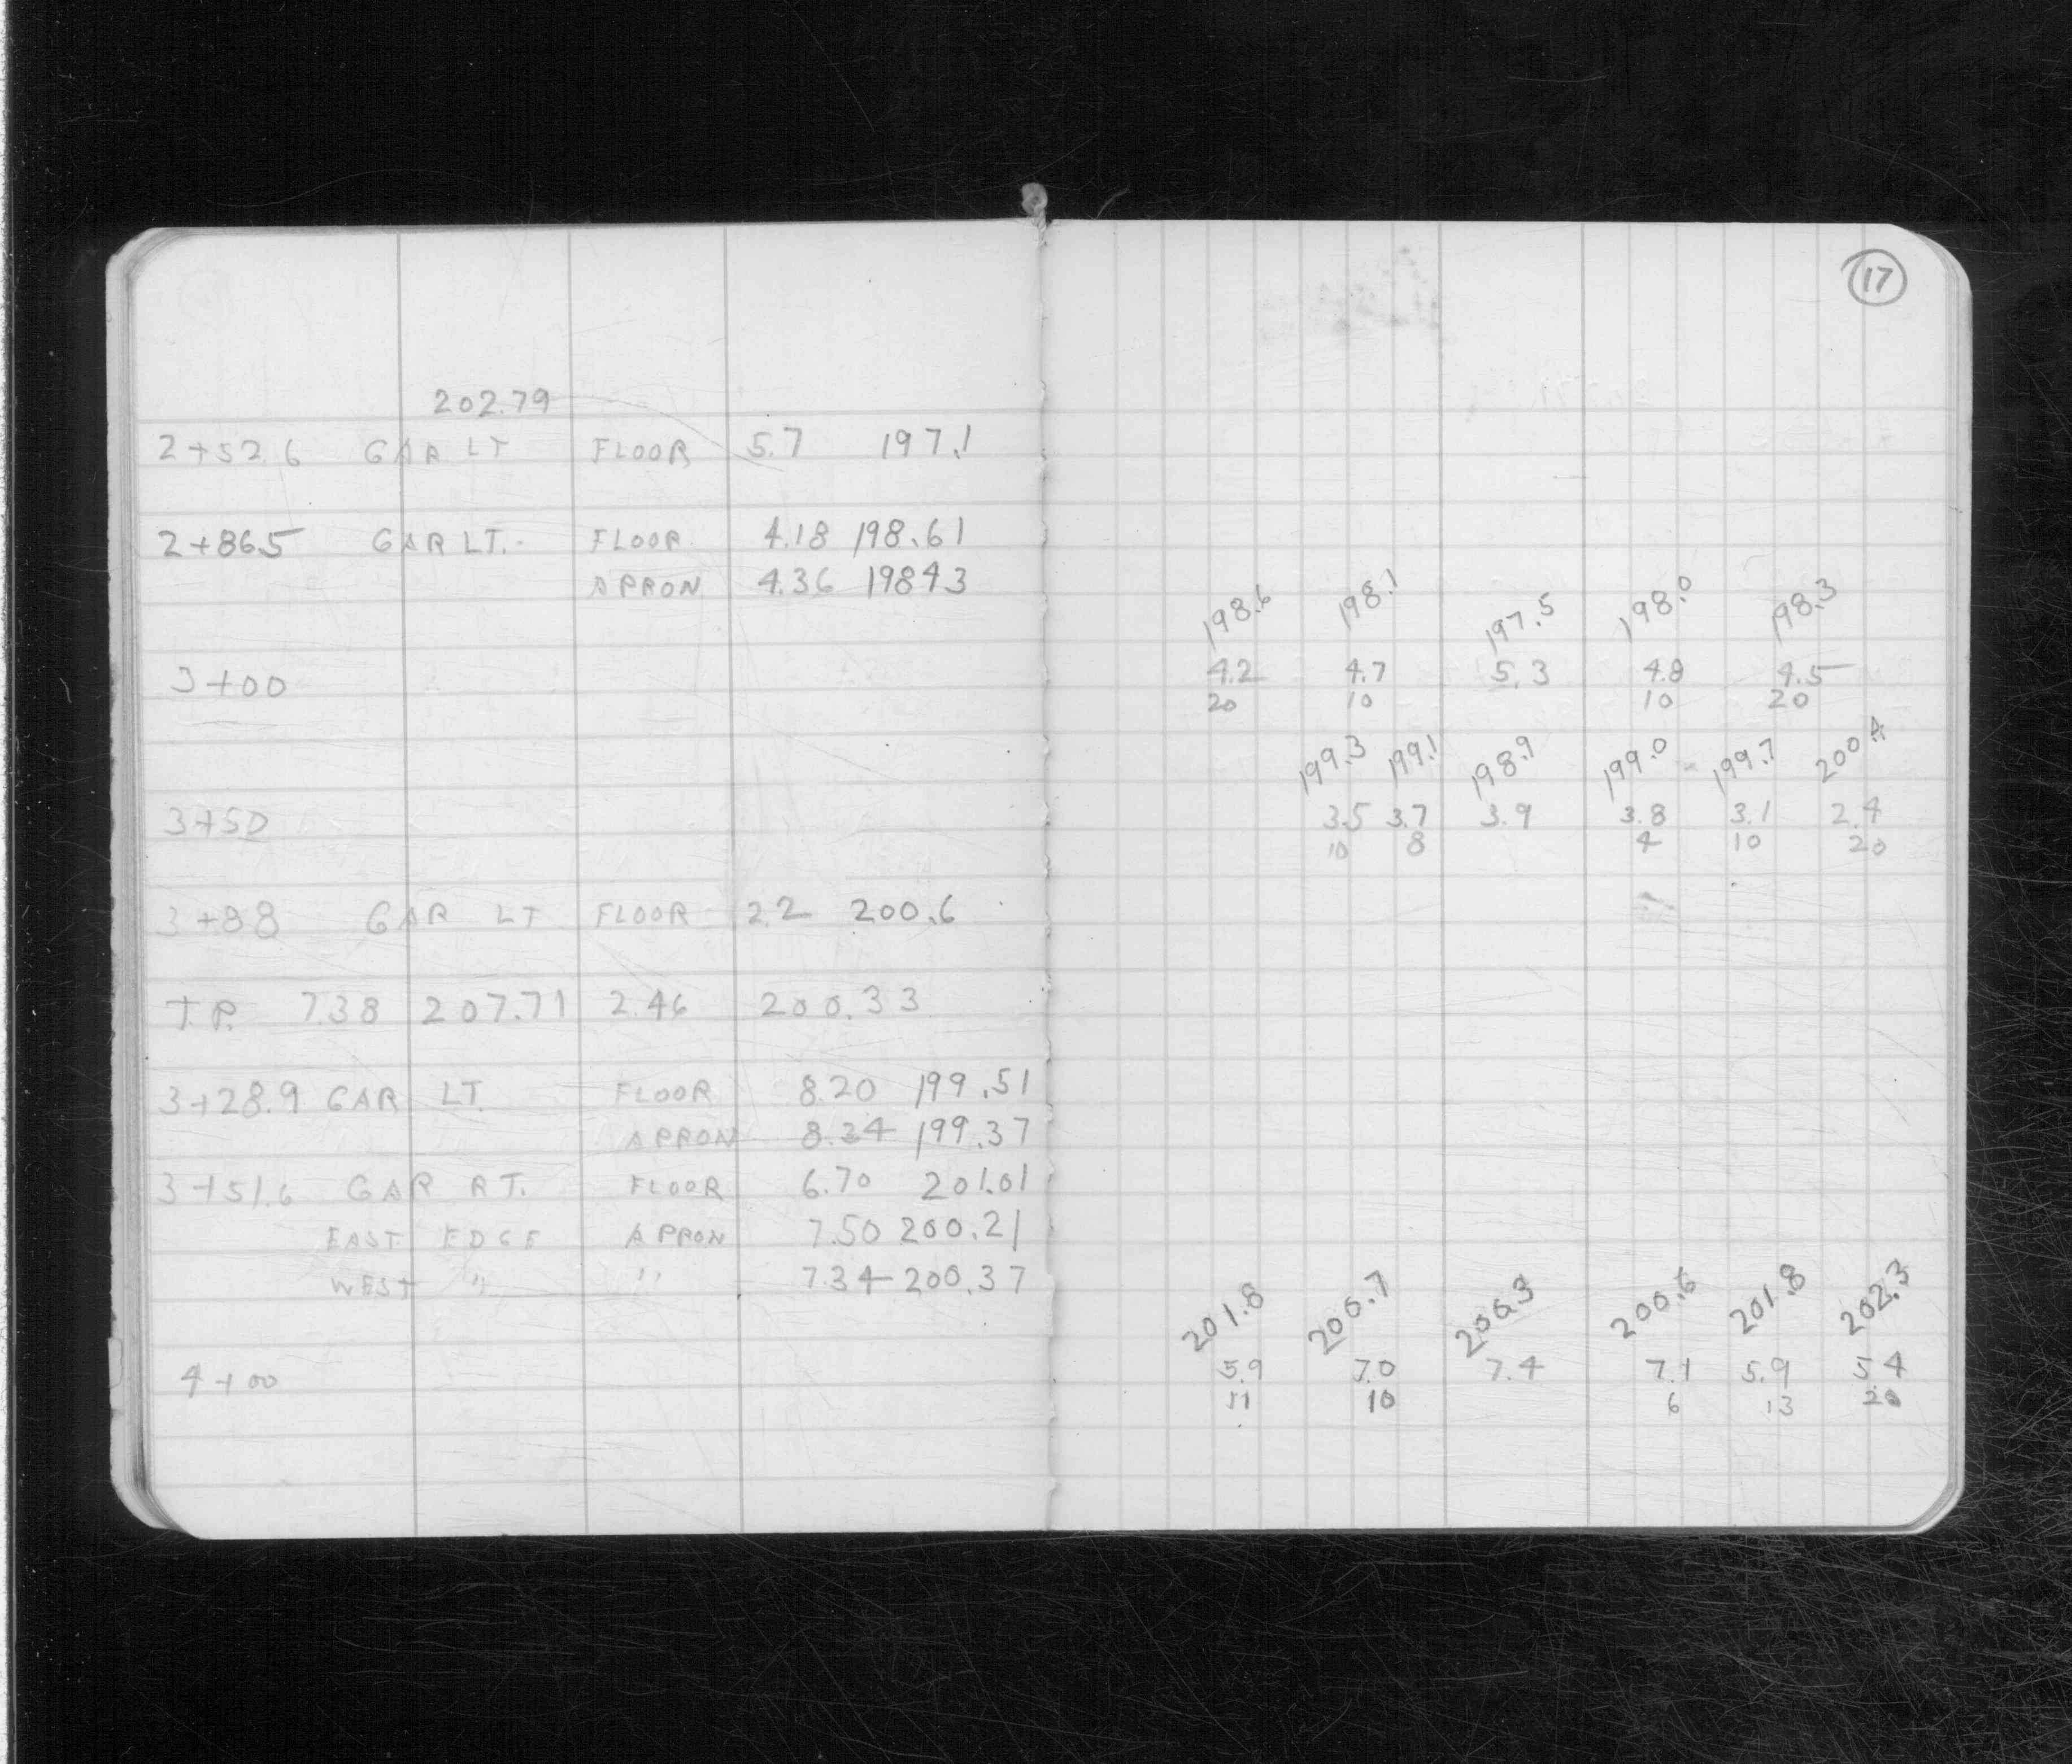 202.79
2+52.6 GAR LT FLOOR 5.7 197.1
2+86.5 GAR LT. FLOOR 4.18 198.61
APRON 4.36 198.43
3+00
3+50
3+88 GAR LT FLOOR 2.2 200.6
T.P. 7.38 207.71 2.46 200.33
3+28.9 GAR LT. FLOOR 8.20 199.51
APRON 8.34 199.37
3+51.6 GAR RT. FLOOR 6.70 201.01
EAST EDGE APRON 7.50 200.21
WEST " " 7.34 200.37
4+00
17
198.6 198.1 197.5 198.0 198.3
4.2 4.7 5.3 4.8 4.5
20 10 10 20
199.3 199.1 198.9 199.0 199.7 200.4
3.5 3.7 3.9 3.8 3.1 2.4
10 8 4 10 20
201.8 200.7 200.3 200.6 201.8 202.3
5.9 7.0 7.4 7.1 5.9 5.4
11 10 6 13 20